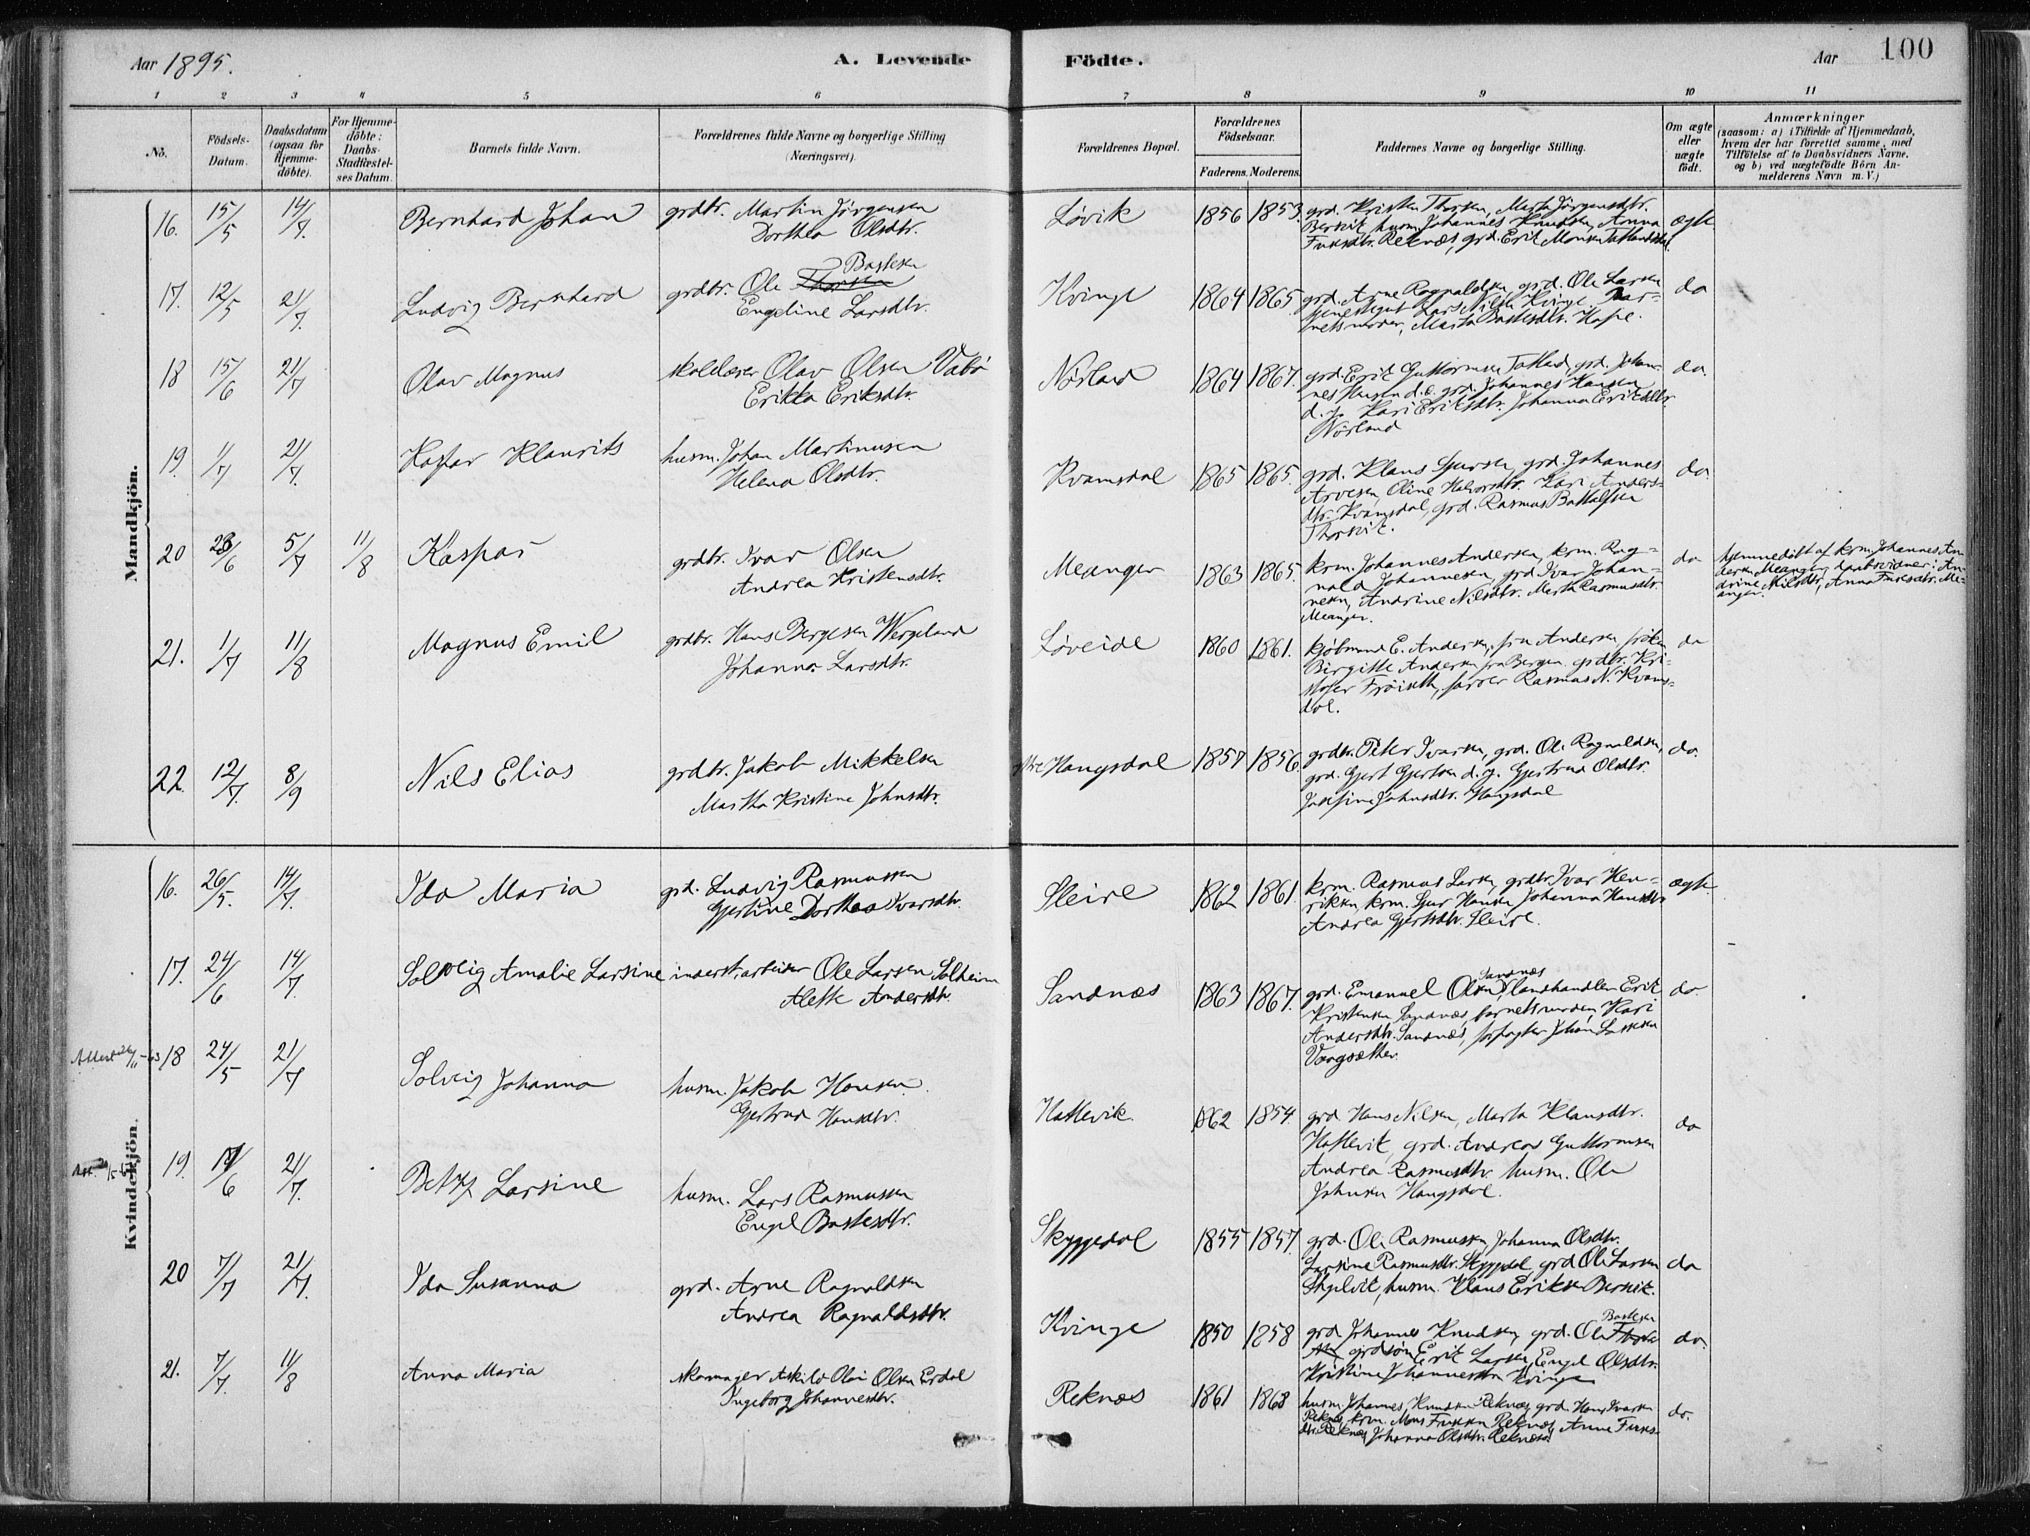 Aar 1895.
A. Levende
Födte.
Aar
100
1 2 3 4 5 6 7 8 9 10 11
No.
Födsels-
Datum.
Daabsdatum
(ogsaa for
Hjemme-
döbte).
For Hjemme-
döbte:
Daabs-
Stadfæstel-
ses Datum.
Barnets fulde Navn.
Forældrenes fulde Navne og borgerlige Stilling
(Næringsvei).
Forældrenes Bopæl.
Forældrenes
Födselsaar.
Faderens. Moderens.
Faddernes Navne og borgerlige Stilling.
Om ægte
eller
uægte
födt.
Anmærkninger
(saasom: a) i Tilfælde af Hjemmedaab,
hvem der har forrettet samme, med
Tilföielse af to Daabsvidners Navne,
og b) ved uægtefödte Börn An-
melderens Navn m. V.)
Mandkjön.
16. 15/5 14/7. Bernhard Johan grdbr. Martin Jörgensen
Dorthea Olsdtr.
Løvik 1856 1853. grd. Kristen Thorsen, Marta Jörgensdtr.
Berkvik, husm. Johannes Knudsen, Anna
Reknæs, grd. Erik Monsen ægte
17. 12/5 21/7. Ludvig Bernhard grdbr. Ole Thorsen Bastesen
Engeline Larsdtr.
Kvinge 1864 1865. grd. Arne Ragnaldsen, grd. Ole Larsen
Lars Nilsen Kvinge, Bar-
nets moder, Marta Bastesdtr. do
18 15/6 21/7 Olav Magnus skolelærer Olav Olsen Vabö
Erikka Eriksdtr.
Nörland 1864 1867. grd. Erik Guttormsen Totland, grd. Johan-
nes Hansen d.e. grd. Johannes Hansen
d.y. Kari Eriksdtr. Johanna Eriksdtr.
Nörland do.
19. 1/7 21/7. Kaspar Klaurits husm. Johan Martinusen
Helena Olsdtr.
Kvamsdal 1865 1865. grd. Klaus Sjursen, grd. Johannes
Arvesen, Oline Halvorsdtr. Kari Anders-
dtr. Kvamsdal, grd. Rasmus
Thorsvik. do.
20 23/6 5/7 11/8 Kaspar grdbr. Ivar Olsen
Andrea Kristensdtr.
Meanger 1863 1865. krm. Johannes Andersen, krm. Rag-
nald Johannesen, grd. Ivar Johan-
nesen, Andrine Nilsdtr. Marta Rasmusdtr.
Meanger. do
hjemmedöbt af krm. Johannes An-
dersen Meanger, daabsvidner: An-
drine Nilsdtr, Anna Me-
anger.
21. 1/7 11/8 Magnus Emil grdbr. Hans Bergesen Wergeland
Johanna Larsdtr.
Löveide 1860 1861. kjöbmand E. Andersen, fru Andersen, fröken
Birgitte Andersen fra Bergen, grdbr. Kri-
stofer Fröiseth, farver Rasmus N. Kvams-
dal. do
22. 12/7. 8/9 Nils Elias grdbr. Jakob Mikkelsen
Martha Kristine Johnsdtr.
Haugsdal 1857 1856. grdbr. Peter Ivarsen, grd. Ole Ragnaldsen,
grd. Gjert Gjertsen d.y. Gjertrud Olsdtr.
Josefine Johnsdtr. Haugsdal do.
Kvindekjön.
16. 26/5. 14/7. Ida Maria grd. Ludvig Rasmussen
Gjertine Dorthea Ivarsdtr.
Sleire 1862 1861 krm. Rasmus Larsen, grdbr. Ivar Hen-
riksen, krm. Sjur Hansen, Johanna Hansdtr.
Andrea Gjertsdtr. Sleire. ægte
17. 24/6 14/7. Solveig Amalie Larsine inderst. arbeider Ole Larsen Solheim
Alette Andersdtr.
Sandnæs 1863 1867. grd. Emanuel Olsen Sandnæs, landhandler Erik
Kristensen Sandnæs, barnets moder, Kari
Andersdtr. Sandnæs, forpagter Johan
Vaagsæther. do.
18 24/5 21/7 Solveig Johanna husm. Jakob Hansen
Gjertrud Hansdtr.
Hatlevik 1862 1854. grd. Hans Nilsen, Marta Klausdtr.
Hatlevik, grd. Andreas Guttormsen
Andrea Rasmusdtr. husm. Ole
Johnsen Haugsdal. do
19. 17/6 21/7. Betzy Larsine husm. Lars Rasmussen
Engel Bastesdtr.
Skyggedal 1855 1857. grd. Ole Rasmussen, Johanna Olsdtr.
Larsine Rasmusdtr. Skyggedal, grd. Ole Larsen
husm. Klaus Eriksen Berkvik. do
20 7/7 21/7. Ida Susanna grd. Arne Ragnaldsen
Andrea Ragnaldsdtr.
Kvinge 1850 1858 grd. Johannes Knudsen, grd. Ole Bastesen
grdsön Erik Larsen, Engel Olsdtr.
Kristine Johannesdtr. Kvinge do.
21. 7/7. 11/8 Anna Maria skomager Askild Olai Olsen Erdal
Ingeborg Johannesdtr.
Reknæs 1861 1868 husm. Johannes Knudsen Reknæs, grd. Hans Ivarsen
Reknæs, krm. Mons Reknæs, Anne
Reknæs, Johanna Olsdtr. Reknæs. do.